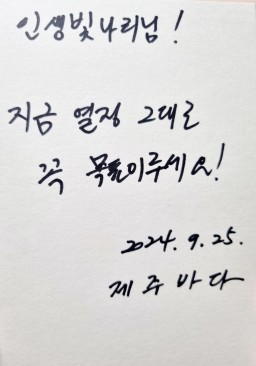 인생빛나리님!
지금 열정 그대로
꼭 목표이루세요!
2024. 9. 25.
제주바다